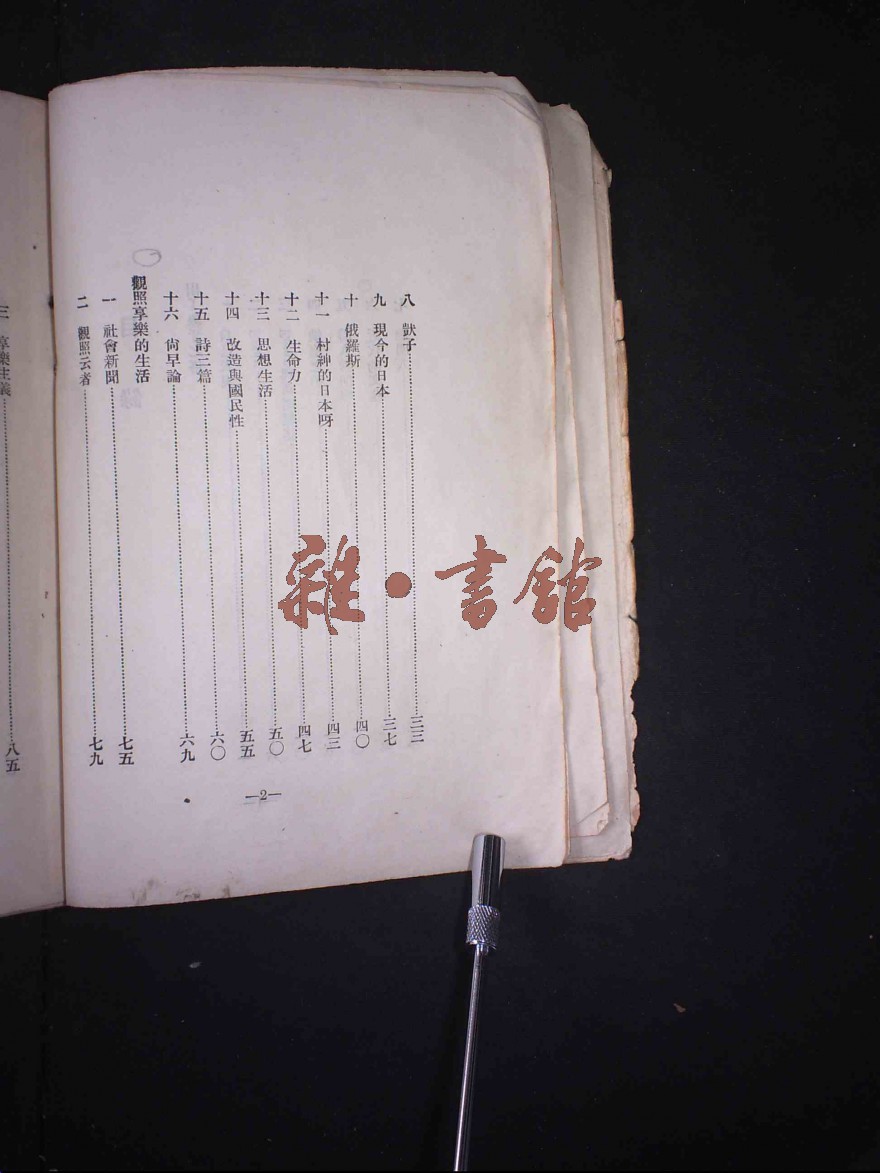 八 獃子……三三
九 現今的日本……三七
十 俄羅斯……四〇
十一 村紳的日本呀……四三
十二 生命力……四七
十三 思想生活……五〇
十四 改造與國民性……五五
十五 詩三篇……六〇
十六 尙早論……六九
觀照享樂的生活
一 社會新聞……七五
二 觀照云者……七九
—2—
三 享樂主義……八五
雜·書館